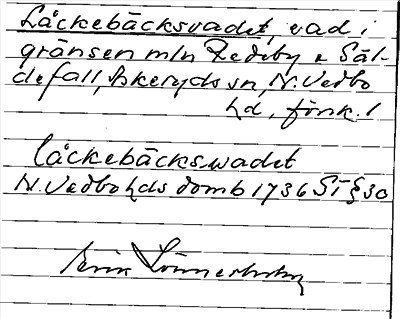 Låckebäcksvadet, vad i
gränsen mln Redeby o Säl-
defall, Askeryds sn, N. Vedbo
hd, försk. l
låckebäckswadet
N. Vedbo hds domb 1736 ST § 30
Erik Lönnerholm